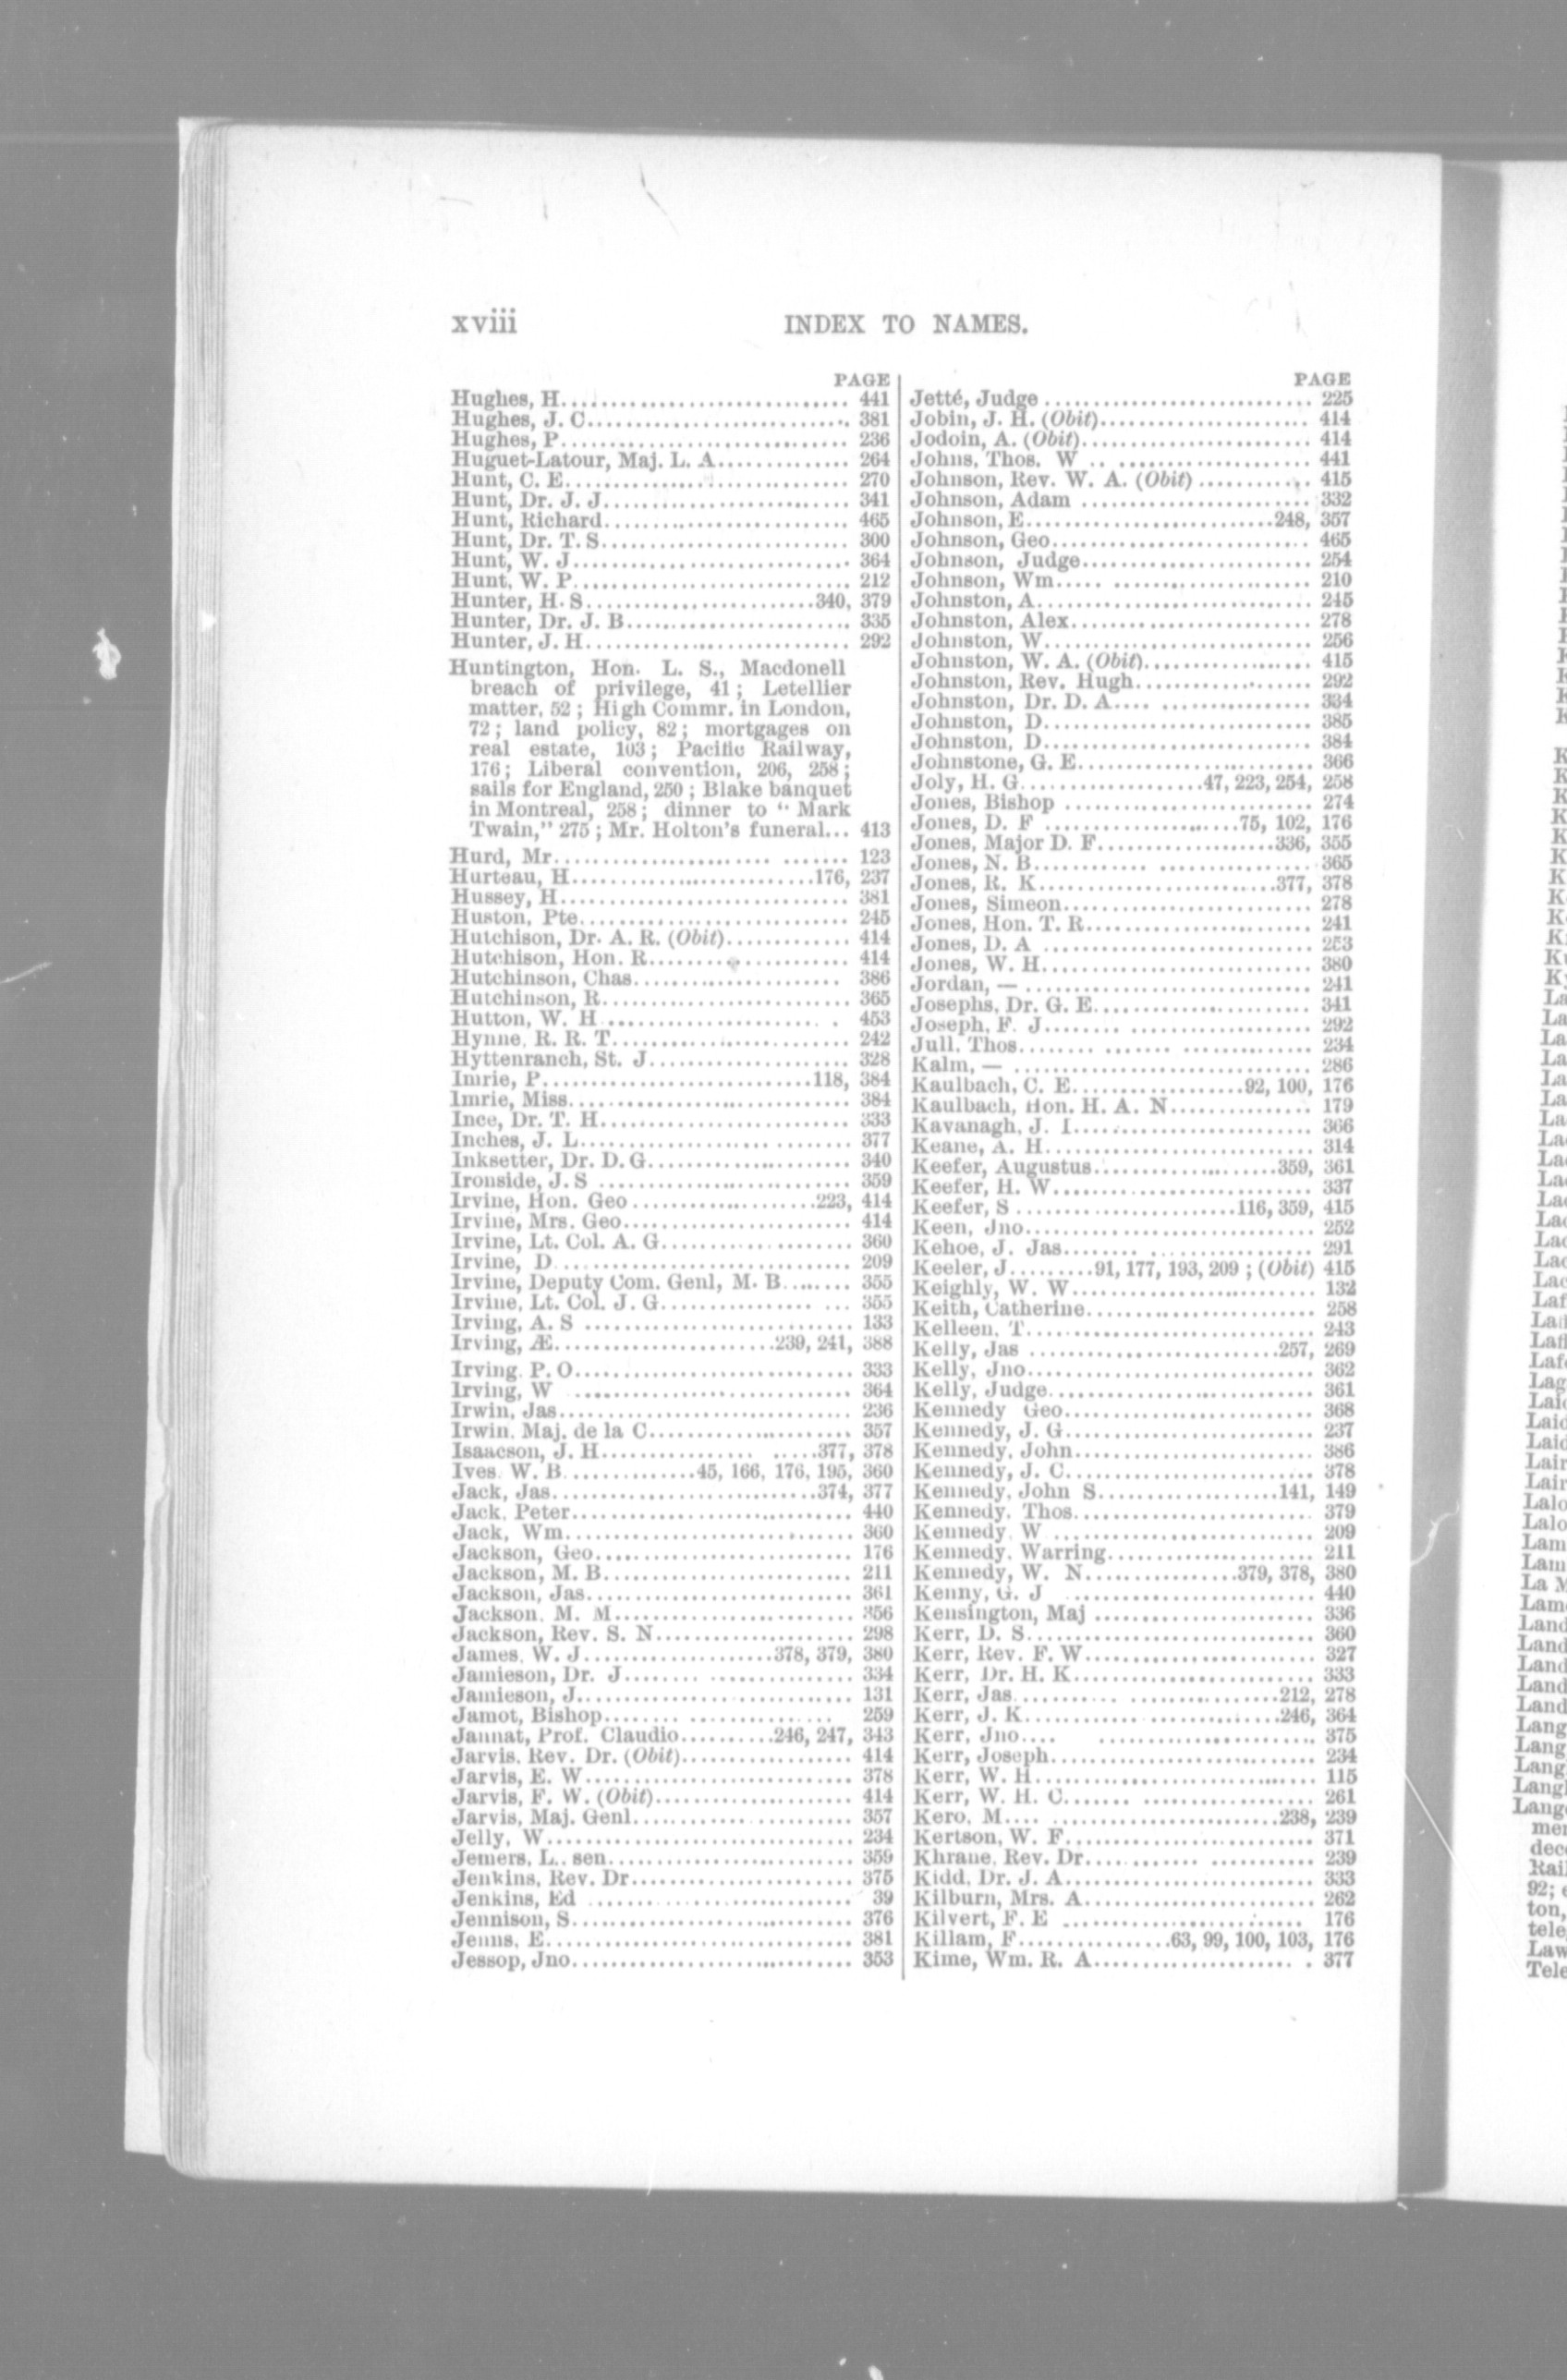 xviii INDEX TO NAMES.
PAGE
Hughes, H. 441
Hughes, J. C. 381
Hughes, P. 236
Huguet-Latour, Maj. L. A. 264
Hunt, C. E. 270
Hunt, Dr. J. J. 341
Hunt, Richard 465
Hunt, Dr. T. S. 300
Hunt, W. J. 364
Hunt, W. P. 212
Hunter, H. S. 340, 379
Hunter, Dr. J. B. 335
Hunter, J. H. 292
Huntington, Hon. L. S., Macdonell
breach of privilege, 41; Letellier
matter, 52; High Commr. in London,
72; land policy, 82; mortgages on
real estate, 103; Pacific Railway,
176; Liberal convention, 206, 258;
sails for England, 250; Blake banquet
in Montreal, 258; dinner to "Mark
Twain," 275; Mr. Holton's funeral... 413
Hurd, Mr. 123
Hurteau, H. 176, 237
Hussey, H. 381
Huston, Pte. 245
Hutchison, Dr. A. R. (Obit) 414
Hutchison, Hon. R. 414
Hutchinson, Chas. 386
Hutchinson, R. 365
Hutton, W. H. 453
Hynne, R. R. T. 242
Hyttenranch, St. J. 328
Imrie, P. 118, 384
Imrie, Miss. 384
Ince, Dr. T. H. 333
Inches, J. L. 377
Inksetter, Dr. D. G. 340
Ironside, J. S. 359
Irvine, Hon. Geo. 223, 414
Irvine, Mrs. Geo. 414
Irvine, Lt. Col. A. G. 360
Irvine, D. 209
Irvine, Deputy Com. Genl, M. B. 355
Irvine, Lt. Col. J. G. 355
Irving, A. S. 133
Irving, Æ. 239, 241, 388
Irving, P. O. 333
Irving, W. 364
Irwin, Jas. 236
Irwin, Maj. de la C. 357
Isaacson, J. H. 377, 378
Ives, W. B. 45, 166, 176, 195, 360
Jack, Jas. 374, 377
Jack, Peter 440
Jack, Wm. 360
Jackson, Geo. 176
Jackson, M. B. 211
Jackson, Jas. 361
Jackson, M. M. 356
Jackson, Rev. S. N. 298
James, W. J. 378, 379, 380
Jamieson, Dr. J. 334
Jamieson, J. 131
Jamot, Bishop 259
Jannat, Prof. Claudio 246, 247, 343
Jarvis, Rev. Dr. (Obit) 414
Jarvis, E. W. 378
Jarvis, F. W. (Obit) 414
Jarvis, Maj. Genl. 357
Jelly, W. 234
Jemers, L., sen. 359
Jenkins, Rev. Dr. 375
Jenkins, Ed 39
Jennison, S. 376
Jenns, E. 381
Jessop, Jno. 353
PAGE
Jetté, Judge 225
Jobin, J. H. (Obit) 414
Jodoin, A. (Obit) 414
Johns, Thos. W. 441
Johnson, Rev. W. A. (Obit) 415
Johnson, Adam 332
Johnson, E. 248, 357
Johnson, Geo. 465
Johnson, Judge 254
Johnson, Wm. 210
Johnston, A. 245
Johnston, Alex. 278
Johnston, W. 256
Johnston, W. A. (Obit) 415
Johnston, Rev. Hugh 292
Johnston, Dr. D. A. 334
Johnston, D. 385
Johnston, D. 384
Johnstone, G. E. 366
Joly, H. G. 47, 223, 254, 258
Jones, Bishop 274
Jones, D. F. 75, 102, 176
Jones, Major D. F. 336, 355
Jones, N. B. 365
Jones, R. K. 377, 378
Jones, Simeon 278
Jones, Hon. T. R. 241
Jones, D. A. 253
Jones, W. H. 380
Jordan, — 241
Josephs, Dr. G. E. 341
Joseph, F. J. 292
Jull, Thos. 234
Kalm, — 286
Kaulbach, C. E. 92, 100, 176
Kaulbach, Hon. H. A. N. 179
Kavanagh, J. I. 366
Keane, A. H. 314
Keefer, Augustus 359, 361
Keefer, H. W. 337
Keefer, S. 116, 359, 415
Keen, Jno. 252
Kehoe, J. Jas. 291
Keeler, J. 91, 177, 193, 209; (Obit) 415
Keighly, W. W. 132
Keith, Catherine 258
Kelleen, T. 243
Kelly, Jas 257, 269
Kelly, Jno. 362
Kelly, Judge. 361
Kennedy Geo. 368
Kennedy, J. G. 237
Kennedy, John 386
Kennedy, J. C. 378
Kennedy, John S. 141, 149
Kennedy, Thos. 379
Kennedy, W. 209
Kennedy, Warring 211
Kennedy, W. N. 379, 378, 380
Kenny, G. J. 440
Kensington, Maj 336
Kerr, D. S. 360
Kerr, Rev. F. W. 327
Kerr, Dr. H. K. 333
Kerr, Jas. 212, 278
Kerr, J. K. 246, 364
Kerr, Jno. 375
Kerr, Joseph 234
Kerr, W. H. 115
Kerr, W. H. C. 261
Kero, M. 238, 239
Kertson, W. F. 371
Khrane, Rev. Dr. 239
Kidd, Dr. J. A. 333
Kilburn, Mrs. A. 262
Kilvert, F. E. 176
Killam, F. 63, 99, 100, 103, 176
Kime, Wm. R. A. 377